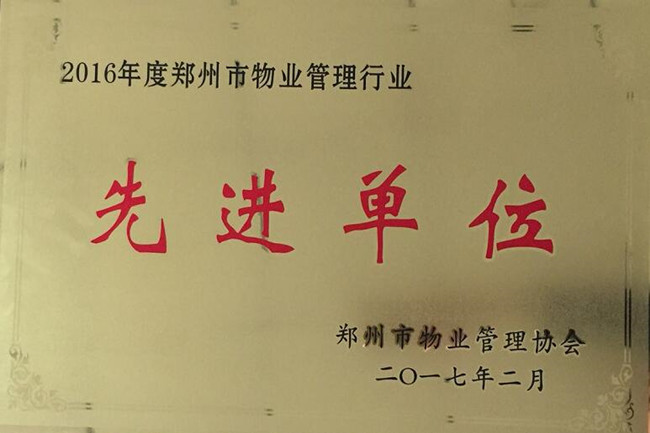 2016年度郑州市物业管理行业
先进单位
郑州市物业管理协会
二〇一七年二月